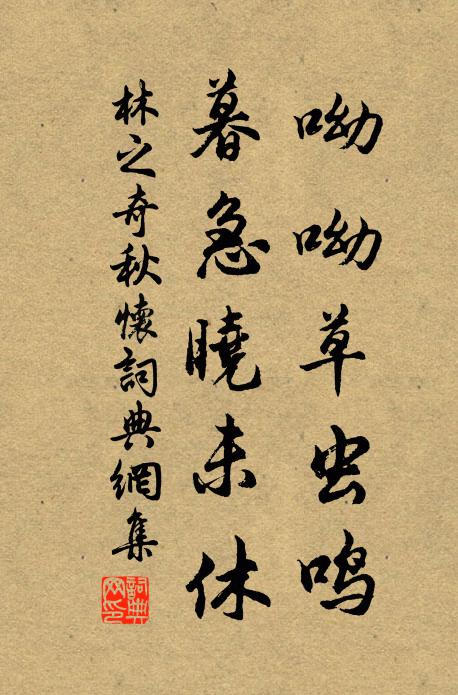 呦呦草虫鸣
暮急曉未休
林之奇秋懷詞典網集
詞典网印